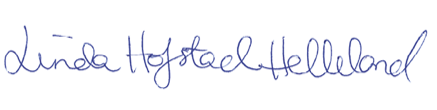 Linda Hofstad Helleland